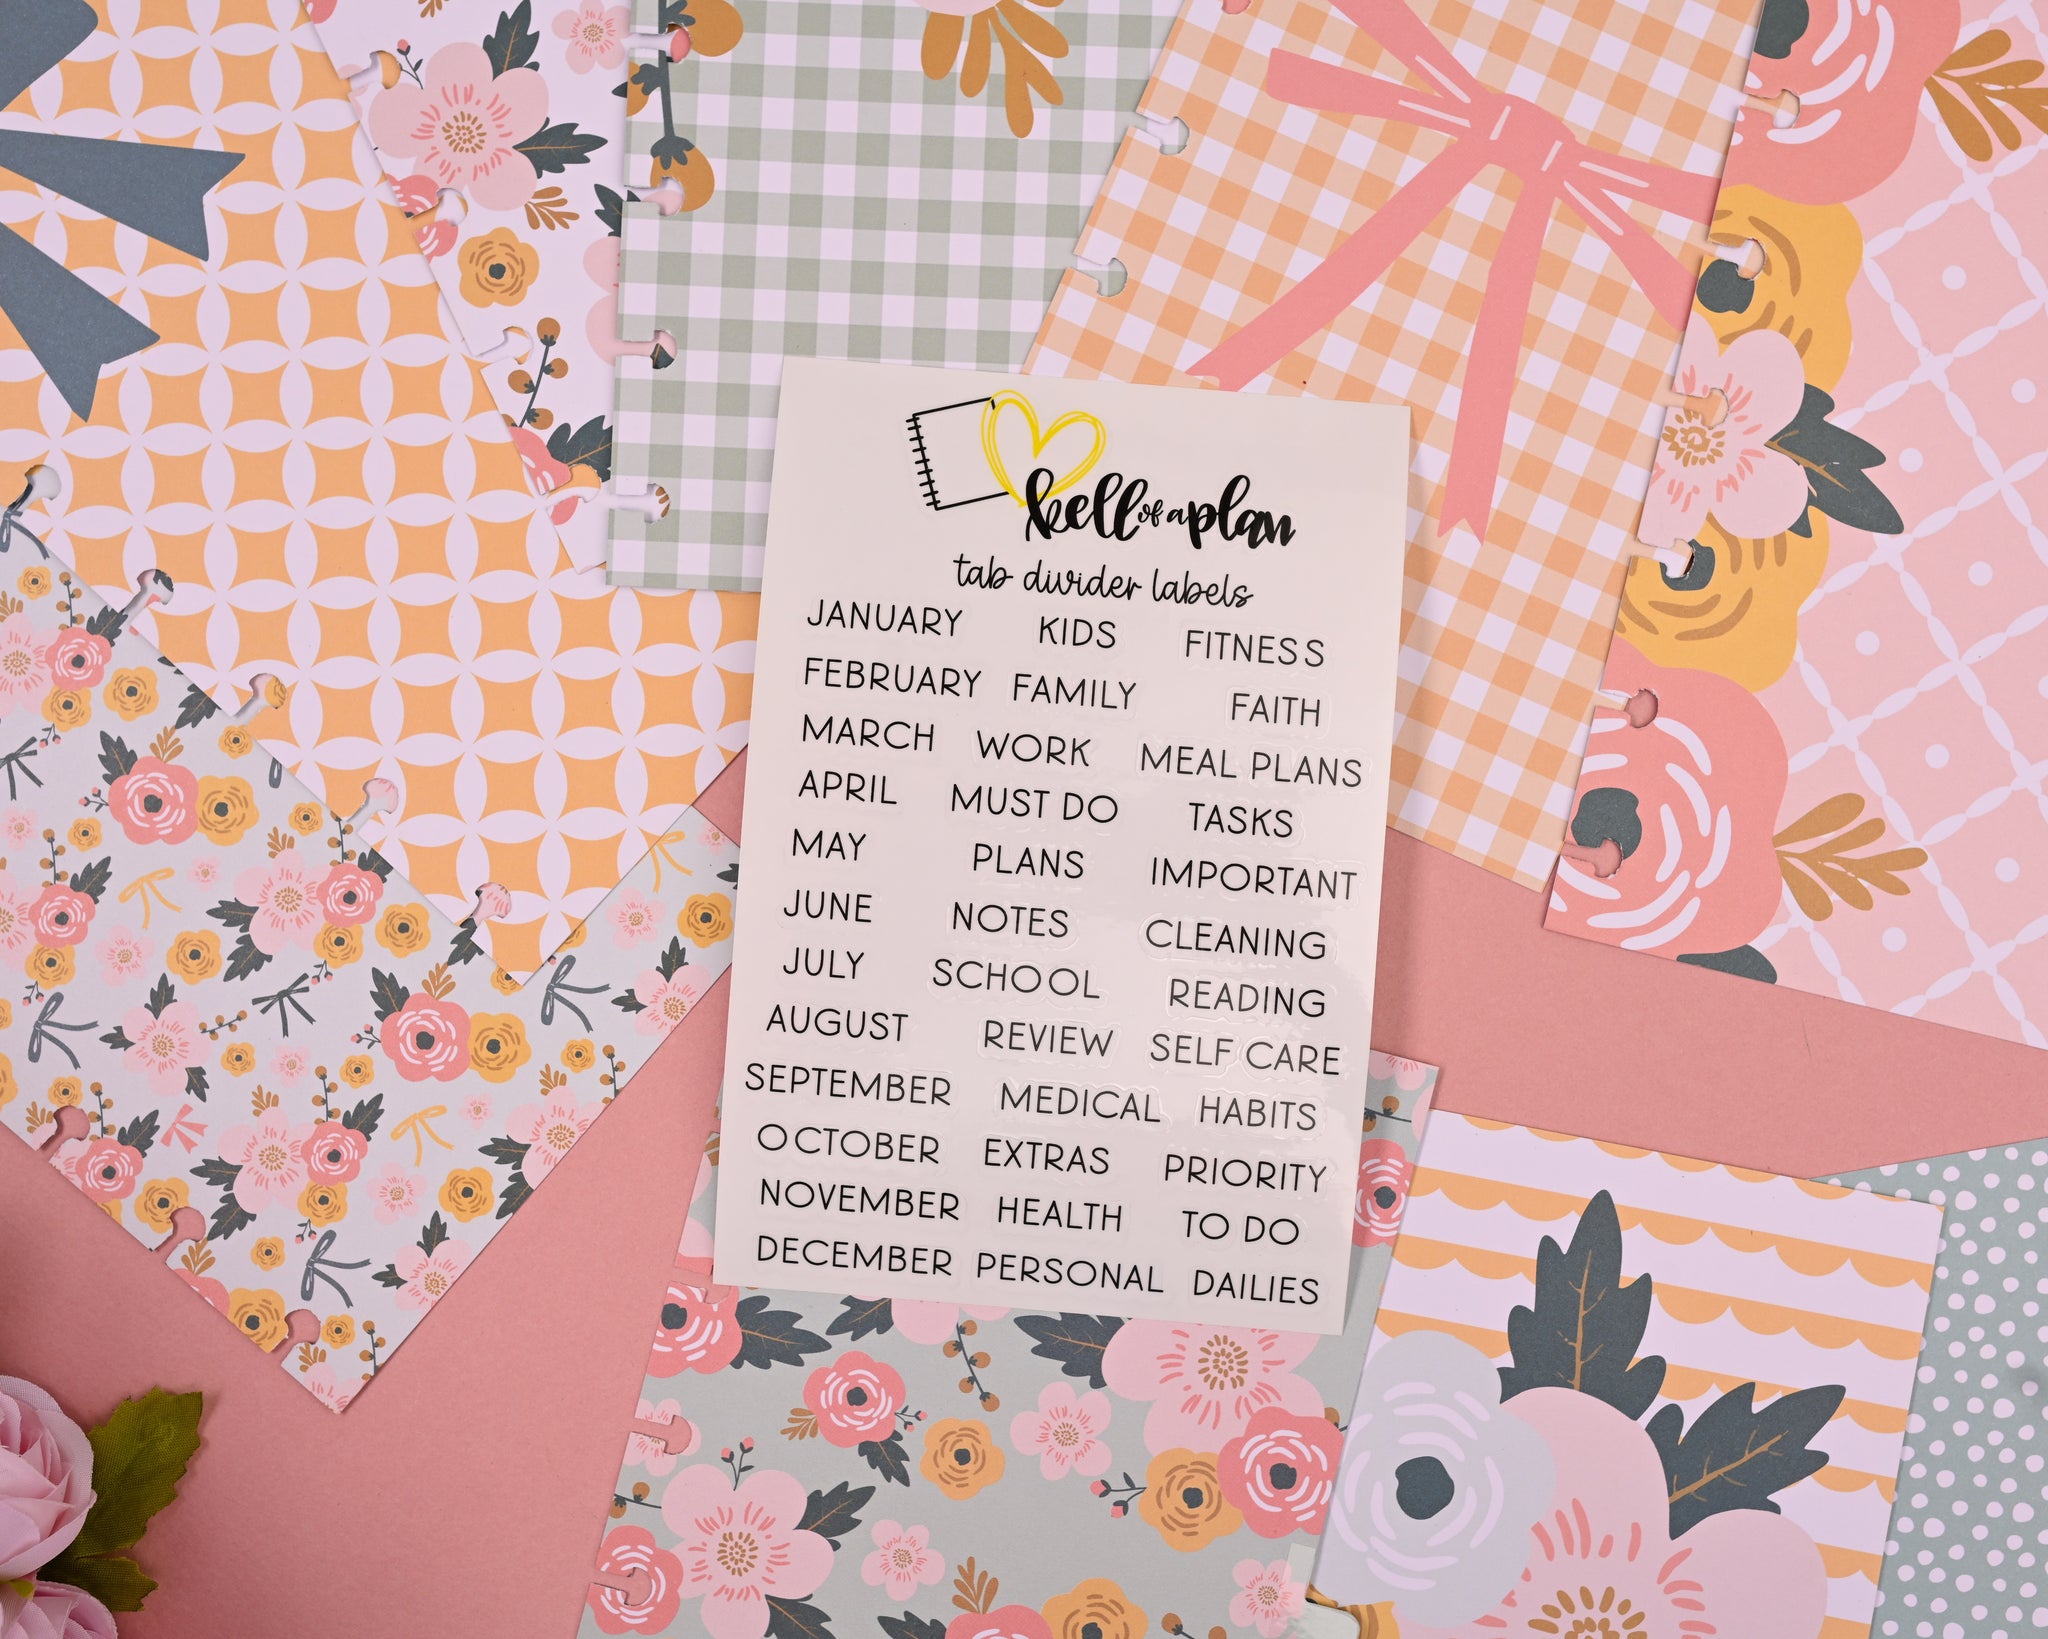 kell of a plan
tab divider labels
JANUARY KIDS FITNESS
FEBRUARY FAMILY FAITH
MARCH WORK MEAL PLANS
APRIL MUST DO TASKS
MAY PLANS IMPORTANT
JUNE NOTES CLEANING
JULY SCHOOL READING
AUGUST REVIEW SELF CARE
SEPTEMBER MEDICAL HABITS
OCTOBER EXTRAS PRIORITY
NOVEMBER HEALTH TO DO
DECEMBER PERSONAL DAILIES